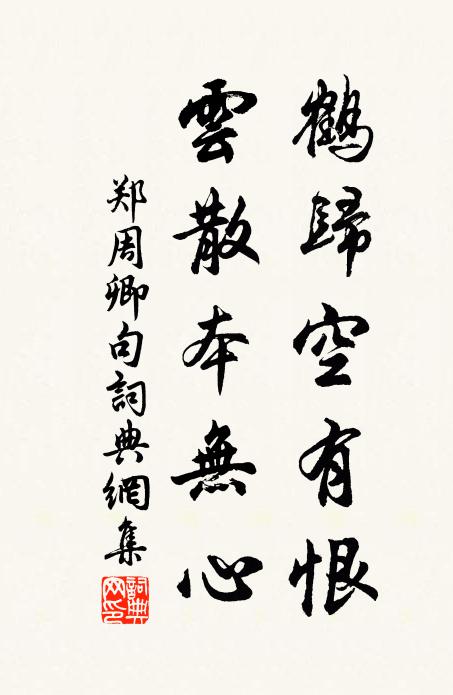 鶴歸空有恨
雲散本無心
郑周卿句詞典網集
詞典网印